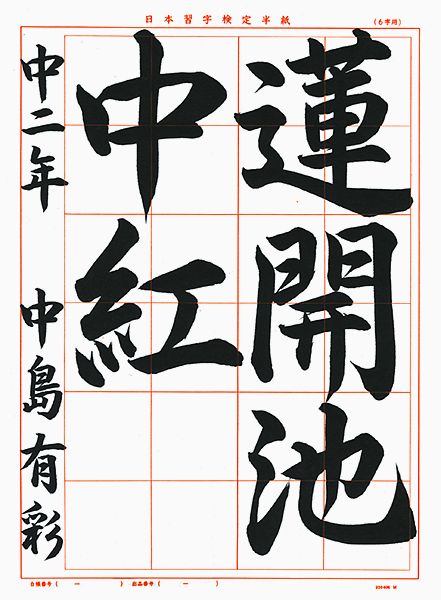 日本習字検定半紙
(6字時)
蓮開池
中紅
中二年 中島有彩
台帳番号 ( ー ) 出品番号 ( ー )